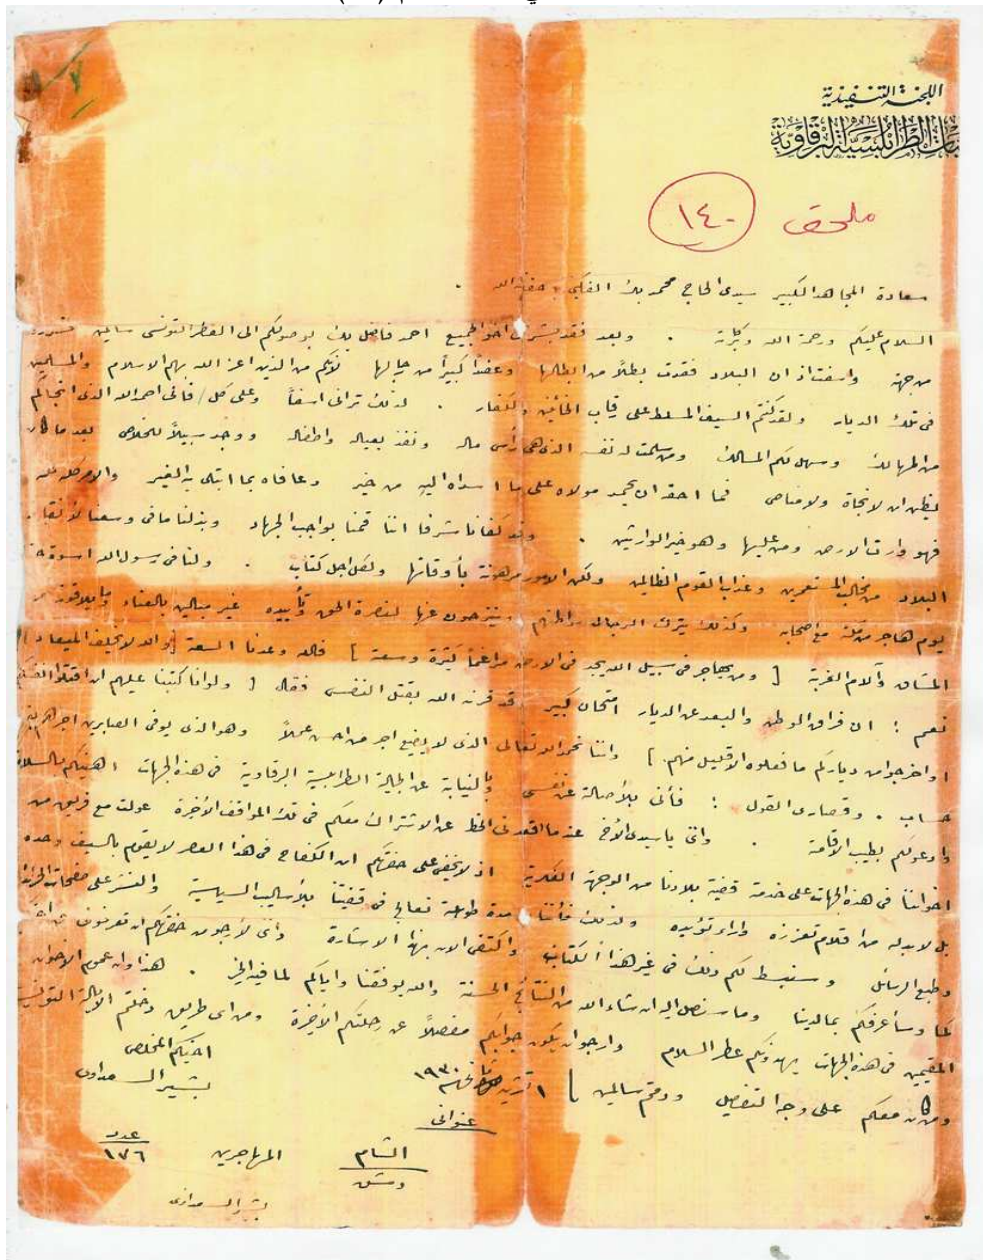 اللجنة التنفيذية
للجاليات الطرابلسية البرقاوية
ملحق (١٤٠)
سعادة المجاهد الكبير سيدى الحاج محمد بك الفكينى حفظه الله .
السلام عليكم ورحمة الله وبركاته . وبعد فقد بشرنى اخو الجميع احمد فاضل بك بوصولكم الى القطر التونسى سالمين فسررت
من جهة واسفت اذ ان البلاد فقدت بطلاً من ابطالها وعضداً كبيراً من رجالها لأنكم من الذين اعز الله بهم الاسلام والمسلمين
فى تلك الديار ولقد كنتم السيف المسلط على رقاب الخائنين والكفار . لذلك ترانى اسفاً وعلى كل / فانى احمد الله الذى انجاكم
من المهالك وسهل لكم المسالك ومن سلمت له نفسه الذى هى رأس ماله ونفذ بعياله واطفاله ووجد سبيلاً للخلاص بعد ما كان
يظن ان لا نجاة ولا مناص فما احقه ان يحمد مولاه على ما اسداه اليه من خير وعافاه بما ابتلى به الغير والامر كله لله
فهو وارث الارض ومن عليها وهو خير الوارثين . وقد كفانا شرفا اننا قمنا بواجب الجهاد وبذلنا ما فى وسعنا لأنقاذ
البلاد من مخالب المستعمرين وعذاب القوم الظالمين ولكن الامور مرهونة بأوقاتها ولكل اجل كتاب . ولنا فى رسول الله اسوة حسنة
يوم هاجر من مكة مع اصحابه وكذلك يترك الرجال مواطنهم وينزحون عنها لنصرة الحق وتأييده غير مبالين بالعناء وما يلاقونه من
المشاق وآلام الغربة [ ومن يهاجر فى سبيل الله يجد فى الارض مراغماً كثيرة وسعة ] فالله وعدنا السعة [ والله لا يخلف الميعاد ]
نعم ! ان فراق الوطن والبعد عن الديار امتحان كبير قد قرنه الله بقتل النفس فقال [ ولو انا كتبنا عليهم ان اقتلوا انفسكم
او اخرجوا من دياركم ما فعلوه الا قليل منهم . ] واننا نحمد الله تعالى الذى لا يضيع اجر من احسن عملاً وهو الذى يوفى الصابرين اجرهم بغير
حساب . وقصارى القول : فأنى بالأصالة عن نفسى وبالنيابة عن الجالية الطرابلسية البرقاوية فى هذه الجهات اهنيكم بالسلامة
وادعو لكم بطيب الاقامة . وانى يا سيدى الأخ عندما اقعدنى الحظ عن الاشتراك معكم فى تلك المواقف الأخيرة عولت مع فريق من
اخواننا فى هذه الجهات على خدمة قضية بلادنا من الوجهة الفكرية اذ لا يخفى على حضرتكم ان الكفاح فى هذا العصر لا يقوم بالسيف وحده
بل لا بد له من اقلام تعززه واراء تؤيده ولذلك فأننا مدة طويلة نعالج فى قضيتنا بالأساليب السياسية والنشر على صفحات الجرائد
وطبع الرسائل وسنبسط لكم ذلك فى غير هذا الكتاب واكتفى الان بهذا الاشارة وانى لأرجو من حضرتكم ان تعرفونى
كما وسأعرفكم بما لدينا وما سنصل اليه ان شاء الله من النتائج الحسنة والله يوفقنا واياكم لما فيه الخير . هذا وان عموم الاخوان
المقيمين فى هذه الجهات يهدونكم عطر السلام وارجو ان يكون جوابكم مفصلاً عن رحلتكم الأخيرة ومن اى طريق دخلتم الايالة التونسية
ومن كان معكم على وجه التفصيل ودمتم سالمين ] ١ تشرين ثانى ١٩٣٠
اخيكم المخلص
بشير السعداوى
عنوانى
الشام
دمشق
المهاجرين
عدد
١٧٦
بشير السعداوى